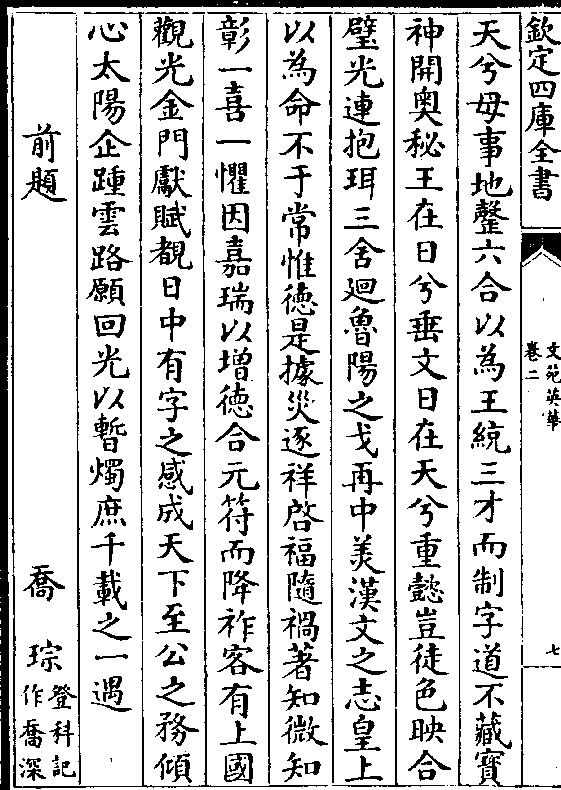 欽定四庫全書
文苑英華
卷二
七
天兮母事地罄六合以為王統三才而制字道不藏寶
神開奥秘王在日兮垂文日在天兮重懿豈徒色映合
璧光連抱珥三舍廻魯陽之戈再中羙漢文之志皇上
以為命不于常惟徳是據災逐祥啓福隨禍著知微知
彰一喜一懼因嘉瑞以增徳合元符而降祚客有上國
觀光金門獻賦覩日中有字之感成天下至公之務傾
心太陽企踵雲路願回光以暫燭庶千載之一遇
前題
喬琮
登科記
作喬深